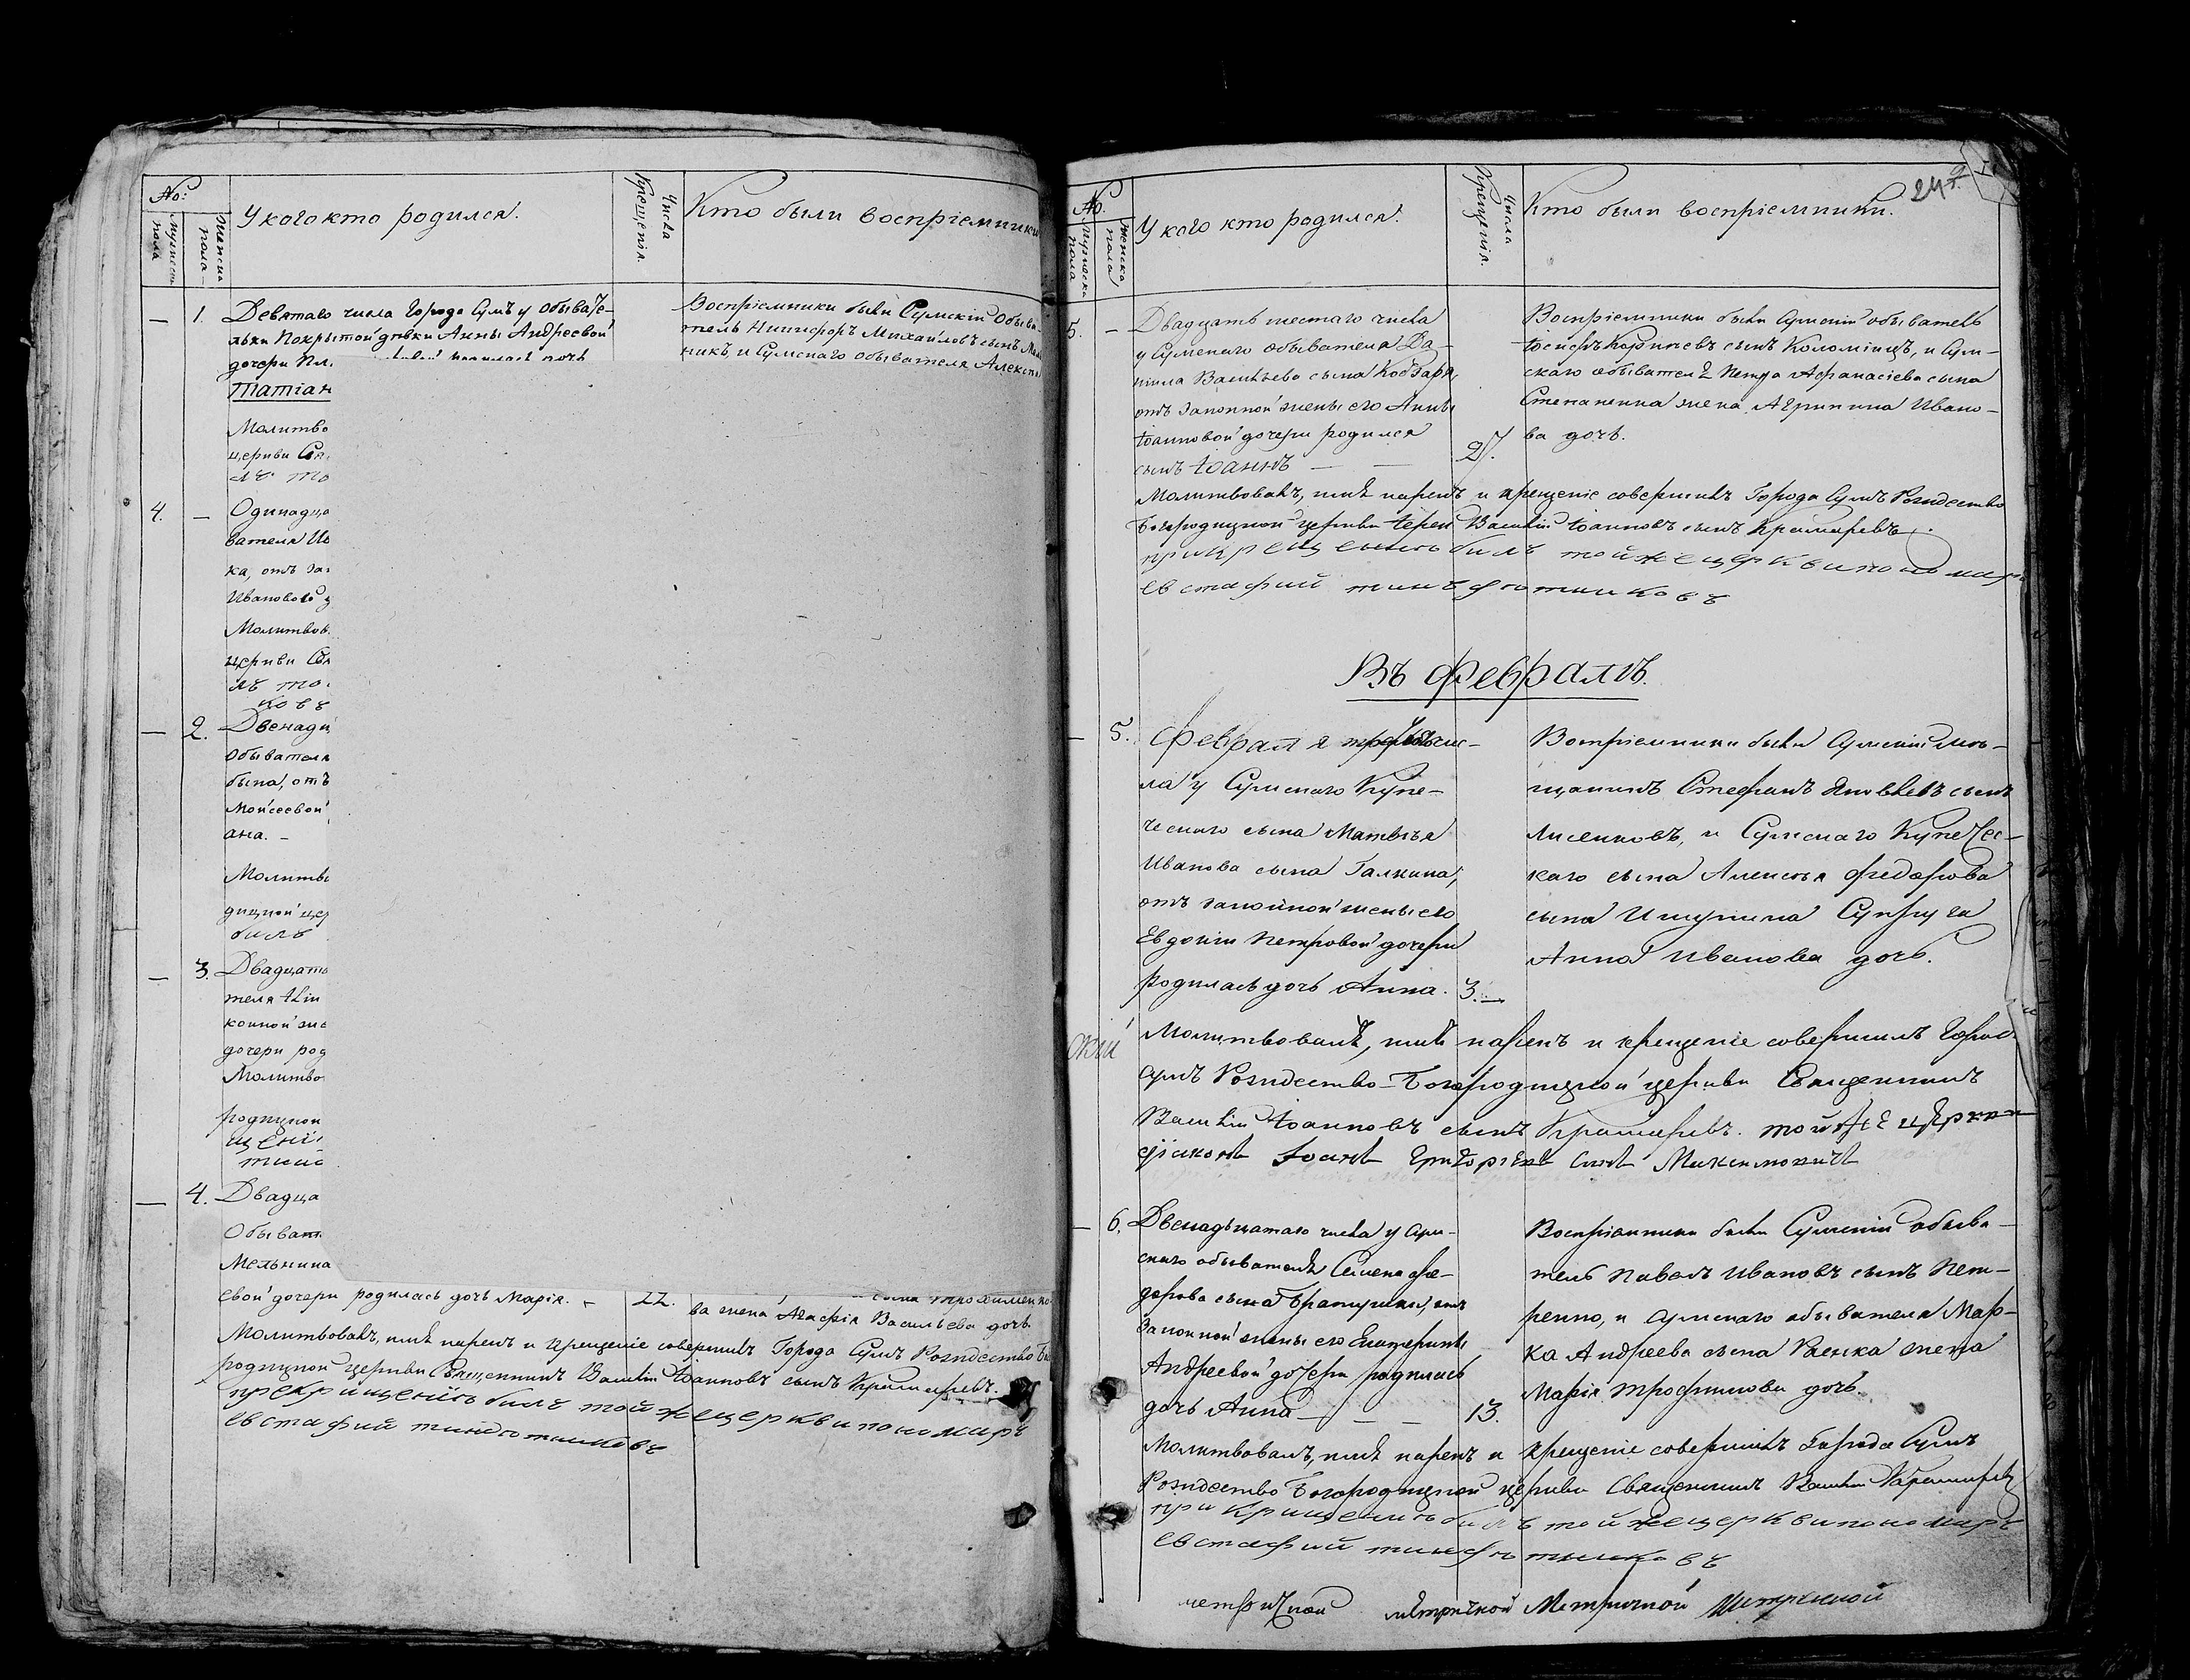 №:
Мужеска пола
Женска пола
У кого кто родился.
Числа Крещенiя.
Кто были воспрiемники
— 1. Девятаго числа Города Сумъ у обывате-
льки Покрытой девки Анны Андреевой
дочери
Татiан
Молитво
церкви
лъ то
4. — Одинадца
вателя
ка, отъ за
Ивановой
Молитвов
церкви
лъ то
ковъ
— 2. Двенадц
обывателя
бына, отъ
Мойсеевой
ана. —
Молитв
дицкой цер
билъ
— 3. Двадцать
теля
конной же
дочери род
Молитво
родицкой
щенi
— 4. Двадца
Обыват
Мельника
евой дочери родилась дочь Марiя. — 22.
Воспрiемники были Сумскiй обыва-
тель Никифоръ Михайловъ сынъ
никъ, и Сумскаго обывателя Алексея
сына Трохименко-
ва жена Агафiя Васильева дочь.
Молитвовалъ, имя нарекъ и крещенiе совершилъ Города Сумъ Рождество Бо
родицкой церкви Священникъ Василiй Iоанновъ сынъ Крамаревъ.
прекрищенiъ билъ тойжецеркви пономаръ
евстафий
242
№.
Мужеска пола
Женска пола
У кого кто родился.
Числа Крещенiя.
Кто были воспрiемники.
5. — Двадцать шестаго числа
у Сумскаго обывателя Да-
нiила Васильева сына Кобзаря,
отъ законной жены его Анны
Iоанновой дочери родился
сынъ Iоаннъ — — 27.
Воспрiемники были Сумскiй обыватель
Iосифъ Корнiевъ сынъ Коломiицъ, и Сум-
скаго обывателя Петра Афанасiева сына
Степаненка жена Агрипина Ивано-
ва дочь.
Молитвовалъ, имя нарекъ и крещенiе совершилъ Города Сумъ Рождество
Богородицкой церкви Iерей Василiй Iоанновъ сынъ Крамаревъ.
прикрещенiъ билъ тойжецеркви пономаръ
евстафий
Въ Февралѣ.
— 5. Февраля третьяго чис-
ла у Сумскаго Купе-
ческаго сына Матвѣя
Иванова сына Галкина,
отъ законной жены его
Евдокiи Петровой дочери
родилась дочь Анна. 3.—
Воспрiемники были Сумскiй мѣ-
щанинъ Стефанъ Яковлевъ сынъ
Лисенковъ, и Сумскаго Купечес-
каго сына Алексѣя Федорова
сына Ишунина Супруга
Анна Иванова дочь.
Молитвовалъ, имя нарекъ и крещенiе совершилъ Города
Сумъ Рождество-Богородицкой церкви Священникъ
Василiй Iоанновъ сынъ Крамаревъ. тойже церкви
дiаконъ Iоанъ Григорiевъ сынъ Максимовичъ
— 6. Двенадъцатаго числа у Сум-
скаго обывателя Семена Фе-
дорова сына отъ
законной жены его Екатерины
Андреевой дочери родилась
дочь Анна — — — 13.
Воспрiемники были Сумскiй обыва-
тель Павелъ Ивановъ сынъ Пет-
ренко, и Сумскаго обывателя Мар-
ка Андреева сына жена
Марiя Трофимова дочь.
Молитвовалъ, имя нарекъ и крещенiе совершилъ Города Сумъ
Рождество Богородицкой церкви Священникъ Василiй Крамаревъ
при крищениъ билъ тойжецеркви пономаръ
евстафий
метричной метричкой Метричной Метричной